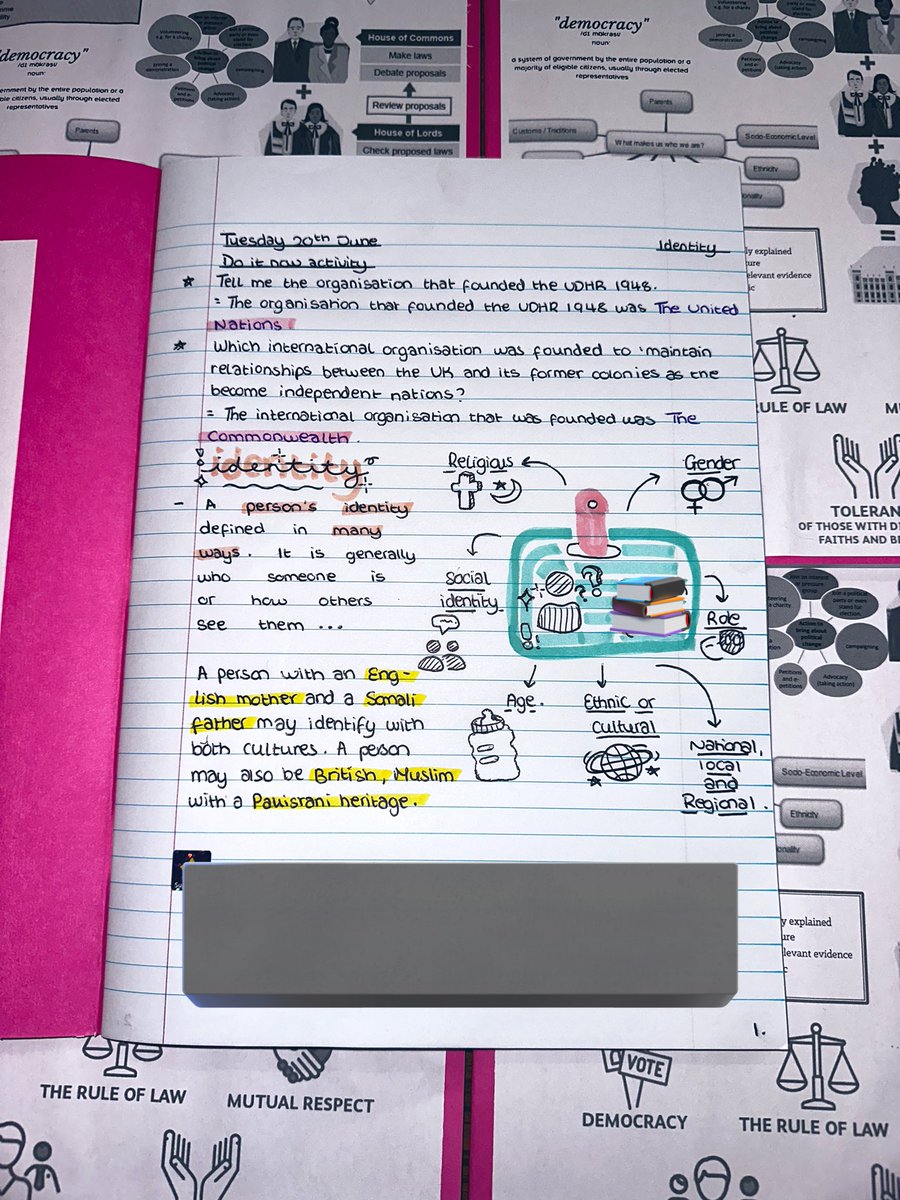 "democracy"
/dɪˈmɒkrəsi/
noun:
House of Commons
Make laws
Debate proposals
Review proposals
House of Lords
Check proposed laws
Volunteering
e.g. for a charity
joining a
demonstration
Action to
bring about
political
change
campaigning
Petitions
and e-
petitions
Advocacy
(taking action)
representatives
Parents
"democracy"
noun:
a system of government by the entire population or a
majority of eligible citizens, usually through elected
representatives
Parents
Customs / Traditions
What makes us who we are?
Socio-Economic Level
Ethnicity
Tuesday 20th June
Identity
Do it now activity
Tell me the organisation that founded the UDHR 1948.
= The organisation that founded the UDHR 1948 was The United
Nations
Which international organisation was founded to 'maintain
relationships between the UK and its former colonies as the
become independent nations?
= The international organisation that was founded was The
Commonwealth.
identity
- A person's identity
defined in many
ways. It is generally
who someone is
or how others
see them ...
A person with an Eng-
lish mother and a Somali
father may identify with
both cultures. A person
may also be British, Muslim
with a Pakistani heritage.
Religious
Gender
Social
identity
Role
Age.
Ethnic or
Cultural
National,
local
and
Regional.
1.
RULE OF LAW
TOLERAN
OF THOSE WITH DI
FAITHS AND BE
Join an interest
or pressure
group.
Run a political
party or even
stand for
election.
Action to
bring about
political
change
campaigning
Petitions
and e-
petitions
Advocacy
(taking action)
Socio-Economic Level
Ethnicity
explained
relevant evidence
THE RULE OF LAW
MUTUAL RESPECT
VOTE
DEMOCRACY
THE RULE OF LAW